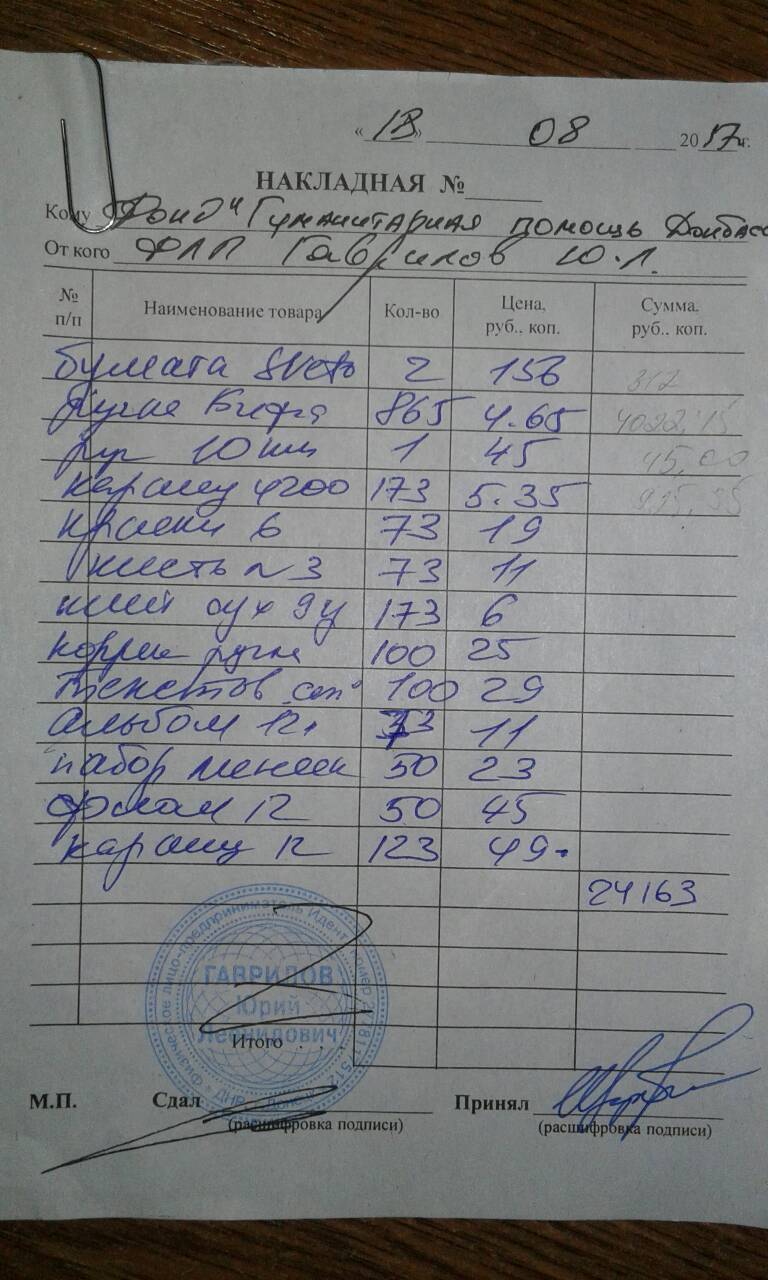 « 18 » 08 2017 г.
НАКЛАДНАЯ №
Кому Фонд "Гуманитарная помощь Донбасс
От кого ФЛП Гаврилов Ю.Л.
№ п/п Наименование товара Кол-во Цена, руб.. коп. Сумма. руб.. коп.
бумага Sveto 2 156 312
ручка 865 4.65 4022,15
10 1 45 45,00
каранд 4200 173 5.35 925,35
краски 6 73 19
кисть №3 73 11
клей 9г 173 6
ручка 100 25
100 29
альбом 12л 73 11
набор 50 23
12 50 45
каранд 12 123 49.
24163
Физическое лицо-предприниматель
ГАВРИЛОВ
Юрий
Леонидович
Итого
М.П. Сдал Принял
(расшифровка подписи) (расшифровка подписи)